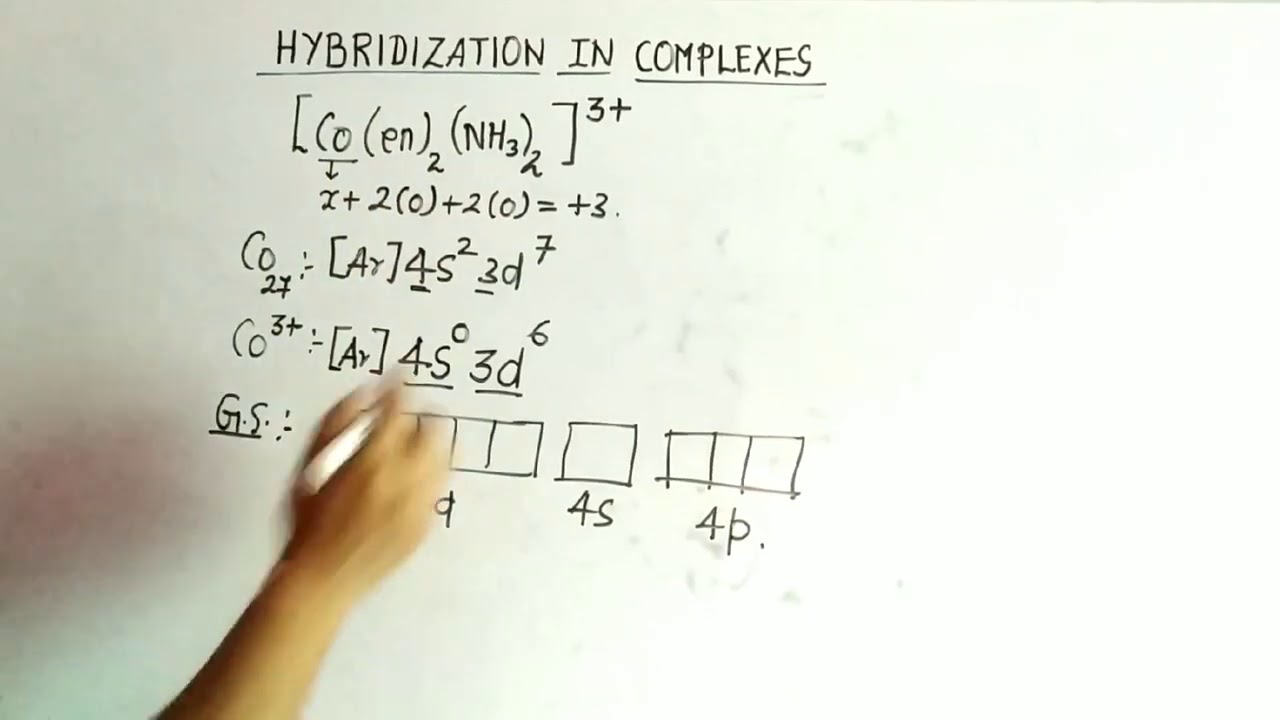 HYBRIDIZATION IN COMPLEXES
[Co(en)₂(NH₃)₂]³⁺
x+2(0)+2(0)=+3.
Co₂₇:- [Ar]4s²3d⁷
Co³⁺:- [Ar]4s⁰3d⁶
G.S.:-
d 4s 4p.